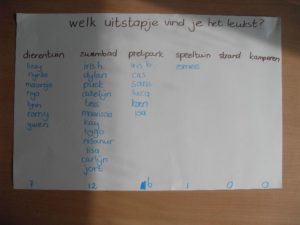 welk uitstapje vind je het leukst?
dierentuin zwembad pretpark speeltuin strand kamperen
lizzy iris h. iris b. esmee
nynke dylan cas
maartje puck sans
noa carlijn luca
lynn tess koen
romy marissa isa
gwen kay
tygo
nisanur
lisa
carlijn
jort
7 12 6 1 0 0